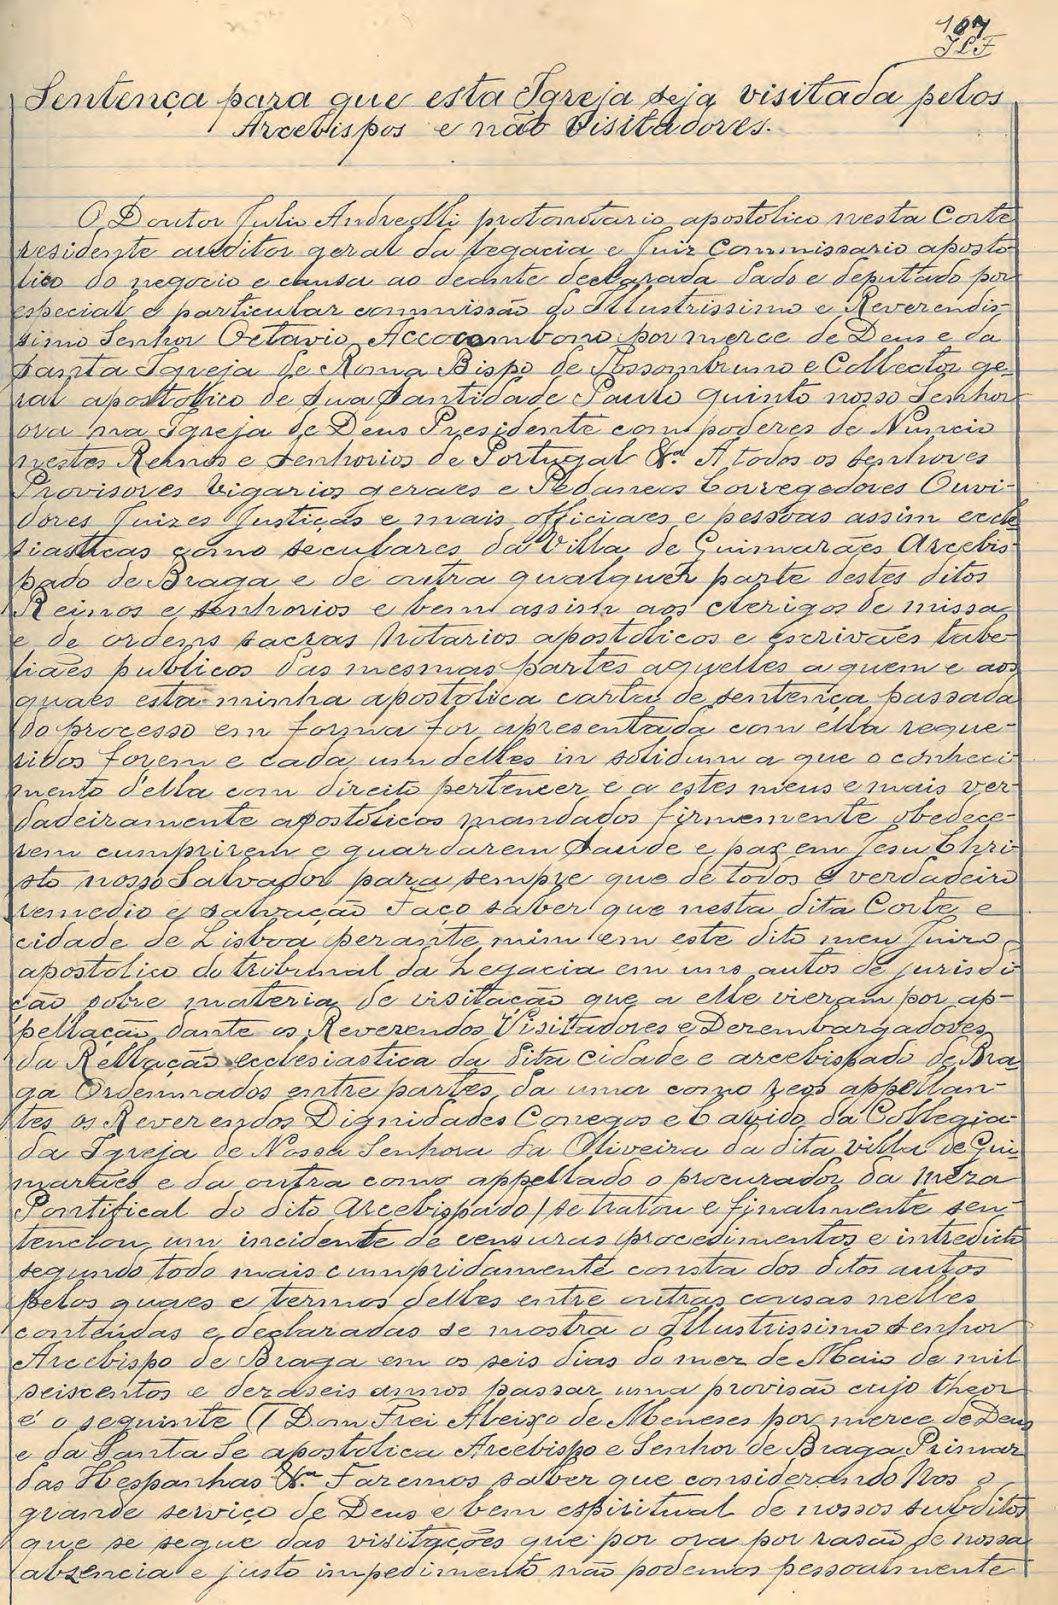 107
JLF
Sentença para que esta Igreja seja visitada pelos
Arcebispos e não Visitadores.
O Doutor Julio Andreolli protonotario apostolico nesta Corte
residente auditor geral da legacia e Juiz Commissario aposto-
lico do negocio e causa ao deante declarada dado e deputado por
especial e particular commissão do Illustrissimo e Reverendis-
simo Senhor Octavio Accorambono por merce de Deus e da
Santa Igreja de Roma Bispo de Fossombruno e Collector ge-
ral apostolico de sua Santidade Paulo quinto nosso Senhor
ora na Igreja de Deus Presidente com poderes de Nuncio
nestes Reinos e senhorios de Portugal &.ª A todos os senhores
Provisores Vigarios geraes e Pedaneos Corregedores Ouvi-
dores Juizes Justiças e mais officiaes e pessoas assim eccle
siasticas como seculares da Villa de Guimarães Arcebis-
pado de Braga e de outra qualquer parte destes ditos
Reinos e senhorios e bem assim aos clerigos de missa
e de ordens sacras Notarios apostolicos e escrivães tabe-
liães publicos das mesmas partes aquelles a quem e aos
quaes esta minha apostolica carta de sentença passada
do processo em forma for apresentada com ella reque-
ridos forem e cada um delles in solidum a que o conheci-
mento d'ella com direito pertencer e a estes meus e mais ver-
dadeiramente apostólicos mandados firmemente obedece-
rem cumprirem e guardarem Saude e paz em Jesu Chri-
sto nosso Salvador para sempre que de todos é verdadeiro
remedio e salvação Faço saber que nesta dita Corte e
cidade de Lisboa perante mim em este dito meu Juizo
apostolico do tribunal da Legacia em uns autos de jurisdi-
ção sobre materia de visitação que a elle vieram por ap-
pellação dante os Reverendos Visitadores e Dezembargadores
da Rellação ecclesiastica da dita cidade e arcebispado de Bra
ga Ordenados entre partes da uma como reos appellan-
tes os Reverendos Dignidades Conegos e Cabido da Collegia-
da Igreja de Nossa Senhora da Oliveira da dita villa de Gui-
marães e da outra como appellado o procurador da meza
Pontifical do dito Arcebispado / se tratou e finalmente sen-
tenciou um incidente de censuras procedimentos e intredicto
segundo todo mais cumpridamente consta dos ditos autos
pelos quaes e termos delles entre outras cousas nelles
conteúdas e declaradas se mostra o Illustrissimo senhor
Arcebispo de Braga em os seis dias do mez de Maio de mil
seiscentos e dezaseis annos passar uma provisão cujo theor
é o seguinte (/ Dom Frei Aleixo de Meneses por merce de Deus
e da Santa Sé apostolica Arcebispo e Senhor de Braga Primaz
das Hespanhas &.ª Fazemos saber que considerando Nos o
grande serviço de Deus e bem espiritual de nossos subditos
que se segue das visitações que por ora por rasão de nossa
absencia e justo impedimento não podemos pessoalmente